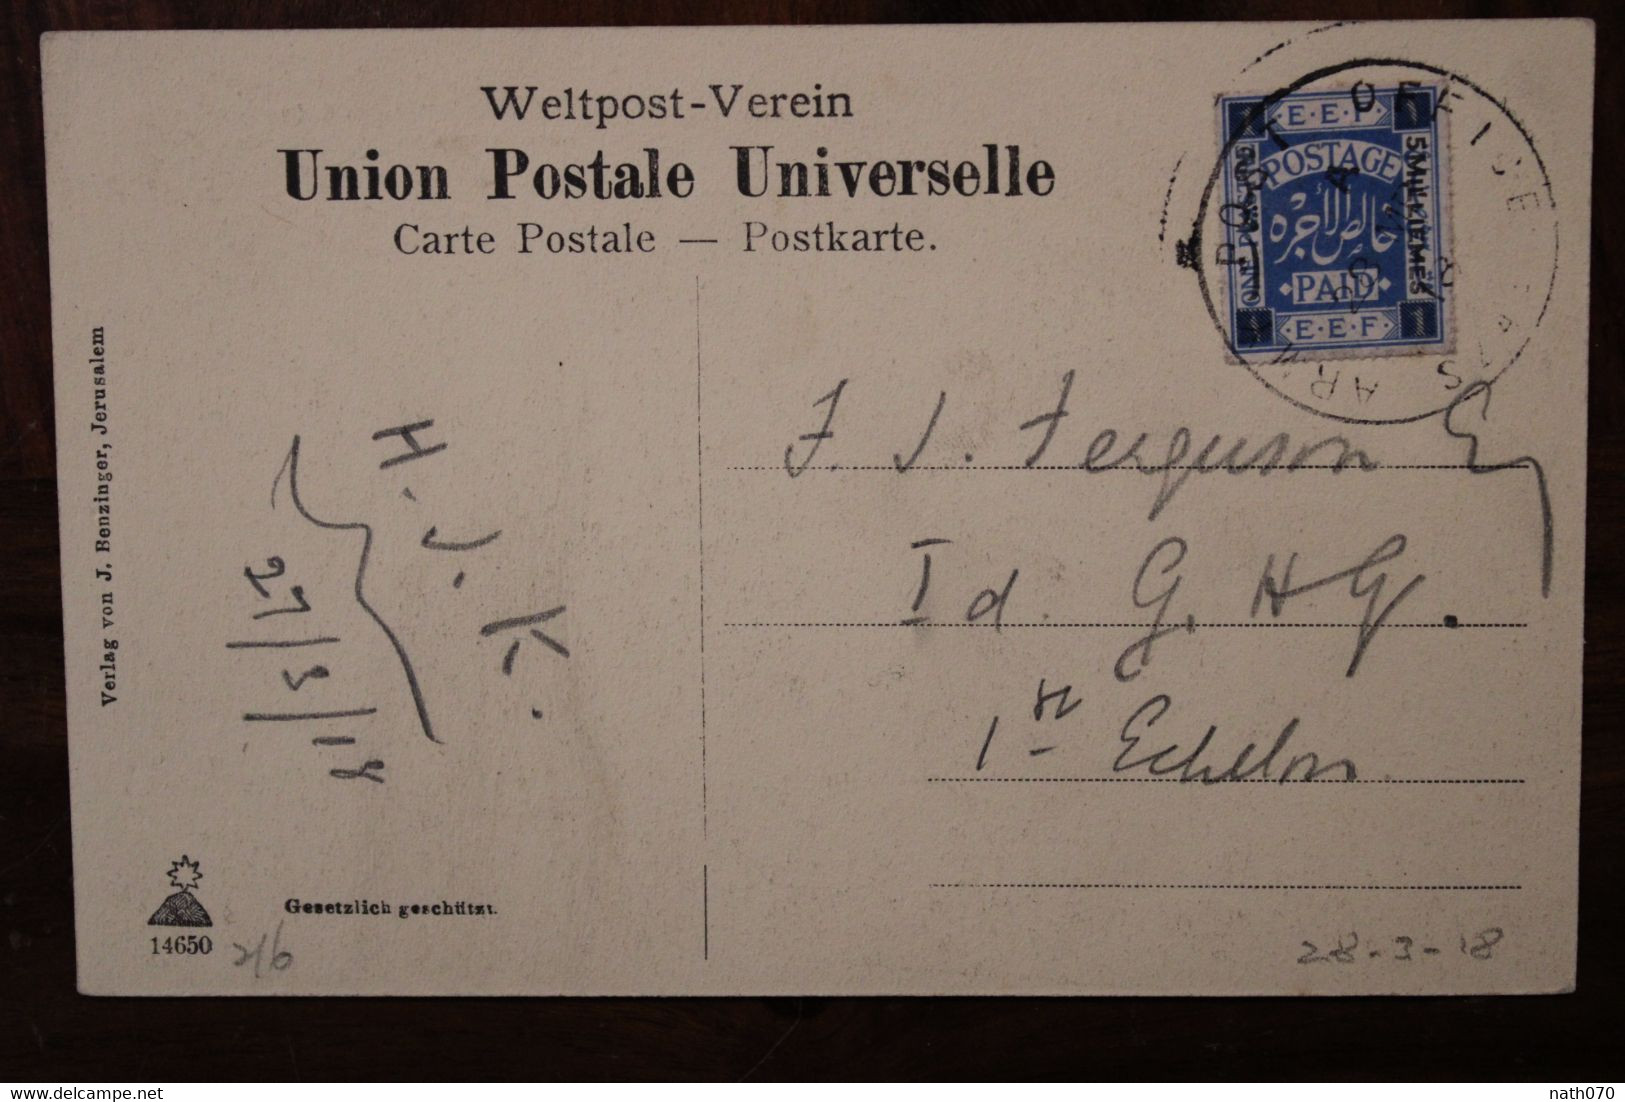 Weltpost-Verein
Union Postale Universelle
Carte Postale — Postkarte.
Verlag von J. Benzinger, Jerusalem
E.E.F.
POSTAGE
خالص الاجره
PAID
E.E.F.
5 MILLIEMES
1 1
POST OFFICE
ARMY
A
28 MR
18
F. J. Ferguson Esq
Id. G. H. Q.
1st Echelon
H. J. K.
27/3/18
Gesetzlich geschützt.
14650
2/6
28-3-18
nath070